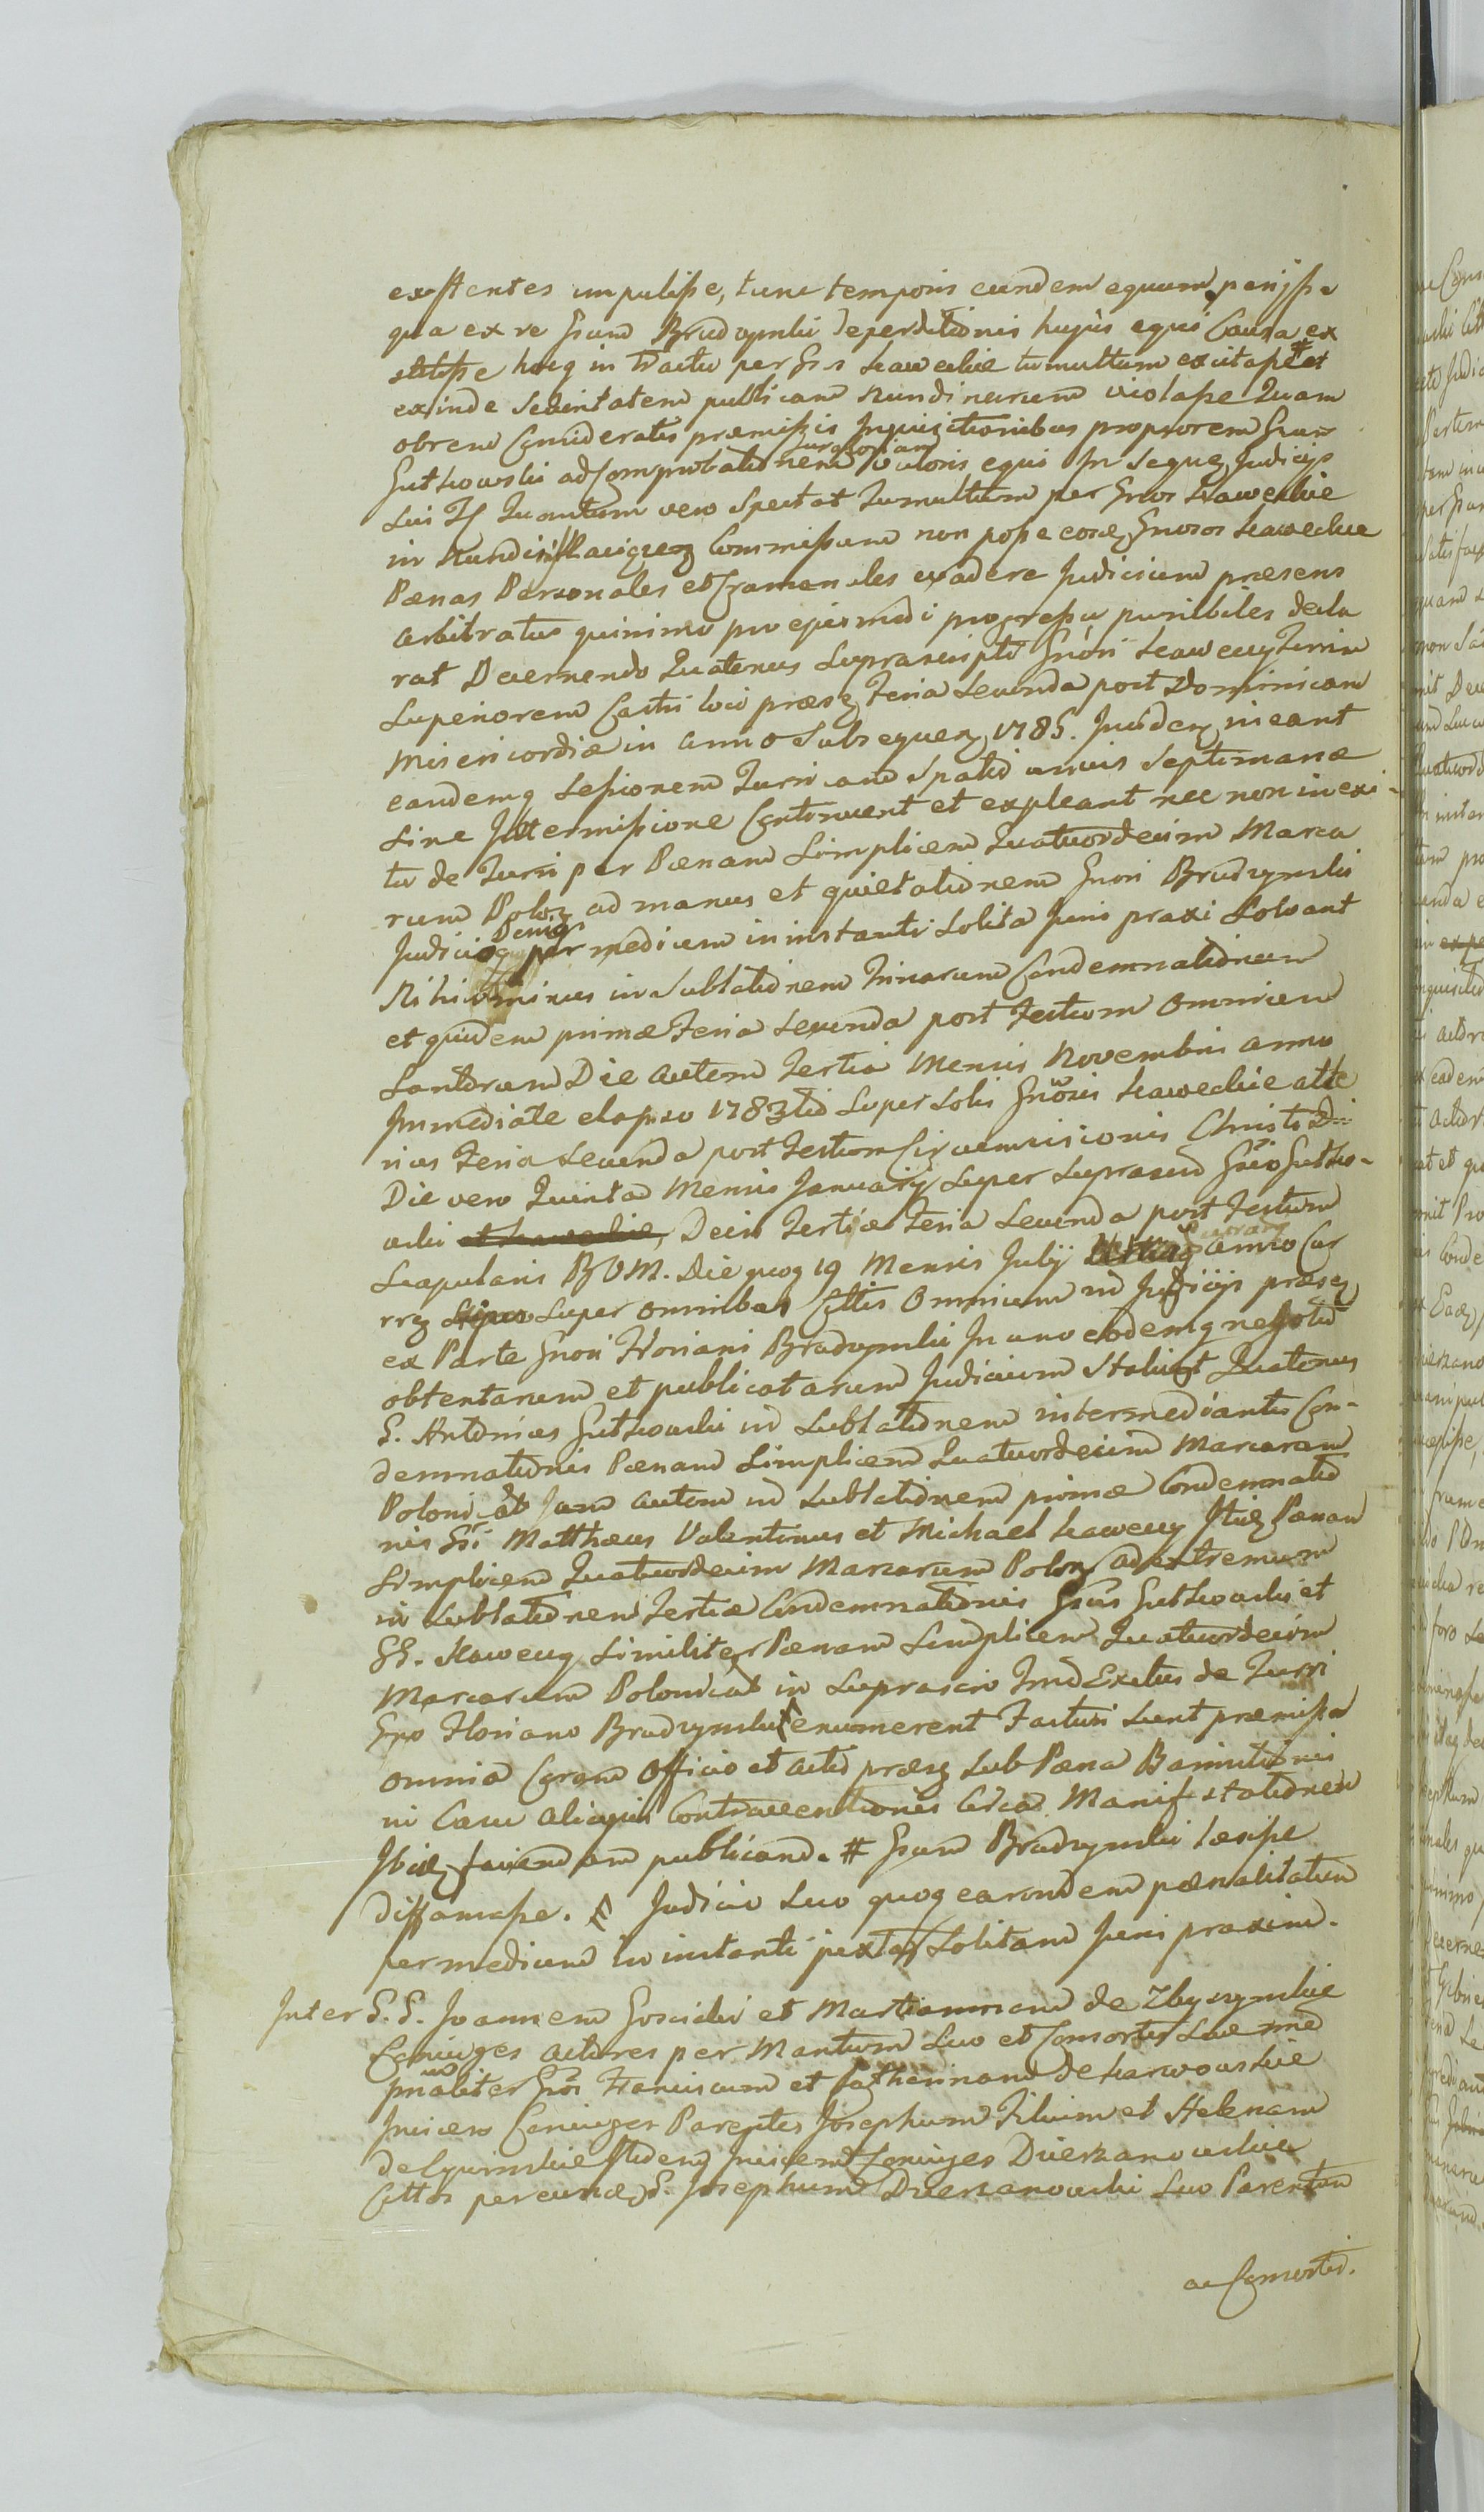 existentes impulisse, tunc temporis eundem equum perijsse
qua ex re Gsum Bradzymski deperditionis hujus equi Causa ex
stitisse hocq in Tractu per Gs Kaweckie tumultum excitasse #
exinde Securitatem publicam Nundinarum violasse Quam
obrem Consideratis præmissis Inquisitionibus propiorem Gsum
Gutkowski ad Comprobationem Juratoriam valoris equi In Seque Judicijs
suis Quantum vero Spectat Tumultum per Gnros Kaweckie
in Nundinis Commissum non posse eosdem Gnosos Kaweckie
Pænas Personales et evadere Judicium præsens
arbitratus quinimo pro ejusmodi progressu punibiles decla
rat Decernendo Quatenus Suprascripti Gnosi Kaweccy Turrim
Superiorem Castri loci præsen Feria Secunda post Dominicam
Misericordiæ in anno Subsequen 1785. ineant
eandemq Sessionem Turri cam Spatio unius Septimanæ
Sine Intermissione Continuent et expleant nec non in exi-
tu de Turri per Pænam Simplicem Quatuordecim Marca
rum Polon ad manus et quietationem Gnosi Bradzymski
Judicioq per medium in instanti Solita Juris praxi Solvant
Nihilominus in Sublationem Trinarum Condemnationum
et quidem primæ Feria Secunda post Festum Omnium
Sanctorum Die autem Tertia Mensis Novembris anno
Immediate elapso 1783tio Super Solis Gnosis Kaweckie alte
rius Feria Secunda post Festum Circumcisionis Christi Dni
Die vero Quinta Mensis January Super Suprascrip Gnoso Gutko-
wski et Kaweckie, Dein Tertiæ Feria Secunda post Festum
Scapularis BVM. Die quoq 19 Mensis July anno Cur
ren Super omnibus Cittis Omnium in Judicijs præsen
ex Parte Gnosi Floriani Bradzymski In uno eodemq negotio
obtentarum et publicatarum Judicium Statuit Quatenus
G. Antonius Gutkowski in Sublationem intermediantis Con-
demnationis Pænam Simplicem Quatuordecim Marcarum
Polonical Jam autem in Sublationem primæ Condemnatio
nis Gsi Matthæus Valentinus et Michael Kaweccy Itid Pænam
Simplicem Quatuordecim Marcarum Polon ad extremum
in Sublationem Tertiæ Condemnationis Gsus Gutkowski et
GG. Kaweccy Similiter Pænam Simplicem Quatuordecim
Marcarum Polonical in Suprascrip Exitus de Turri
Gnso Floriano Bradzymski enumerent Facturi Sunt præmissa
omnia Coram Officio et actis præsen Sub Pæna Bannitionis
in Casu alicujus Contraventionis Circa Manifestationem
Ibid faciendam publicand. # Gsum Bradzymski læsisse
diffamasse. Judicio Suo quoq earundem pænalitatum
per medium in instanti juxta Solitam Juris praxim.
Inter G.G. Joannem Goscicki et Mariannam de Zbyszynskie
Conjuges actores per Maritum Suo et Consortis Suæ nne
pnaliter Gsos Franciscum et Catherinam de Karwowskie
Invicem Conjuges Parentes Josephum Filium et Helenam
de Itidem Invicem Conjuges Dzierzanowskie
Cittos per eund G. Josephum Dzierzanowski Suo Parentum
ac Consortis.